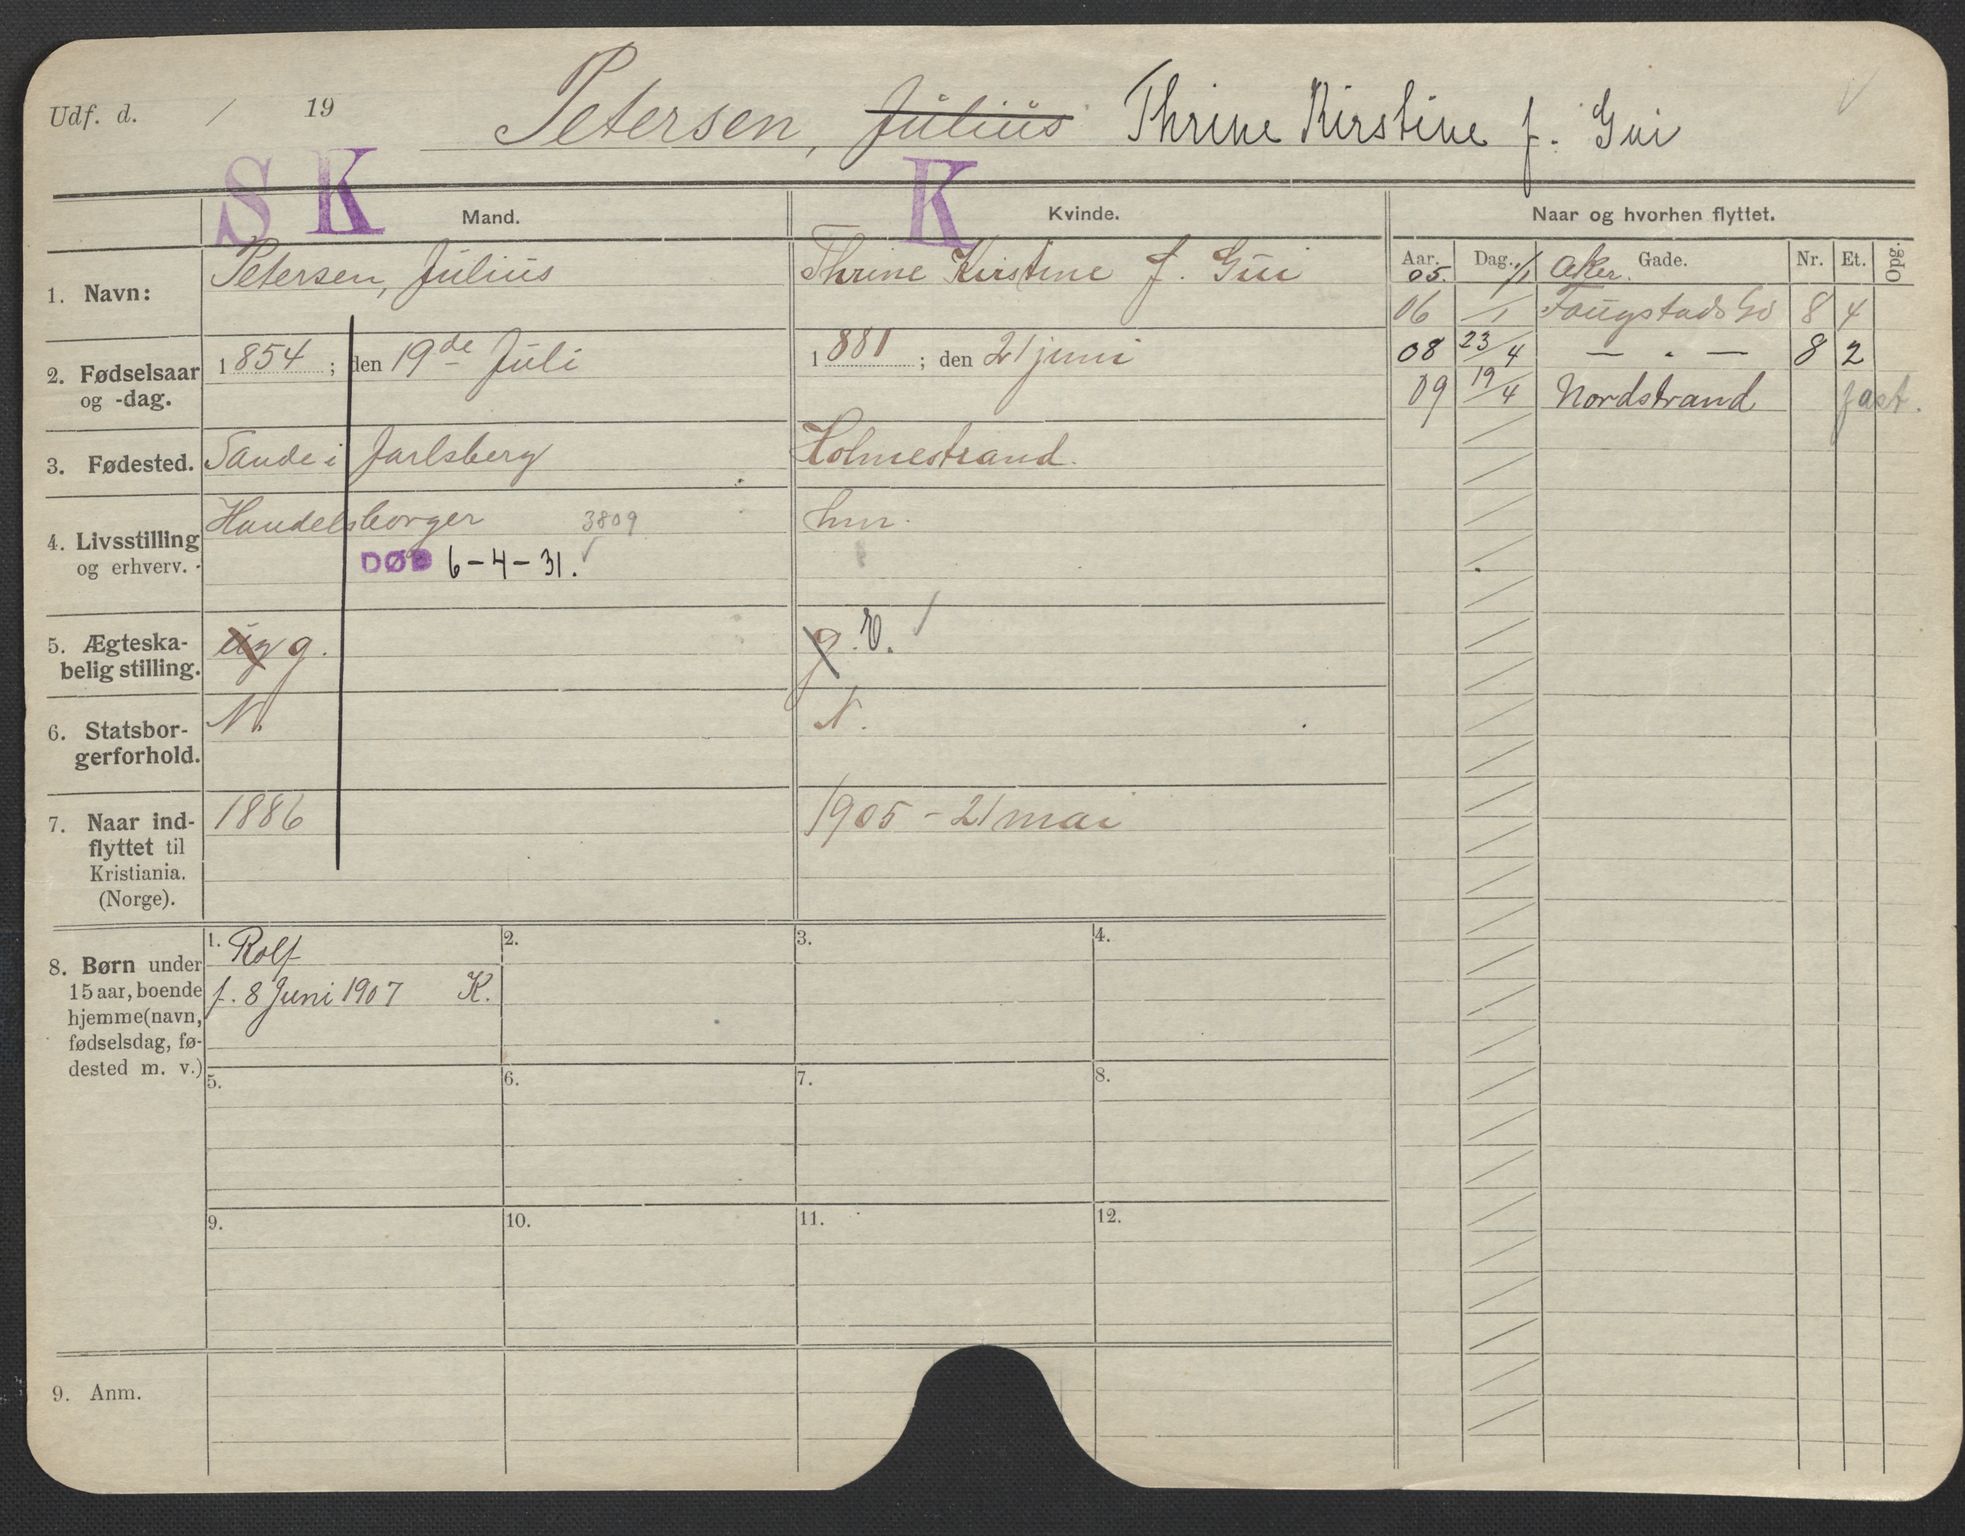 Udf. d. / 19 Petersen, Julius Thrine Kirstine f. Gui
S K K
Mand. Kvinde. Naar og hvorhen flyttet.
Aar. Dag. Gade. Nr. Et. Opg.
1. Navn: Petersen, Julius Thrine Kirstine f. Gui
05. 1/1 Aker.
06 /1 Fougstads Gd 8 4
2. Fødselsaar og -dag. 1854; den 19de Juli 1881; den 21 juni
08 23/4 — " — 8 2
09 19/4 Nordstrand fast.
3. Fødested. Sande i Jarlsberg Holmestrand.
4. Livsstilling og erhverv. Handelsborger 3809 hm.
DØD 6-4-31. ✓
5. Ægteska-
belig stilling. ug g. g. E. /
6. Statsbor-
gerforhold. N. N.
7. Naar ind-
flyttet til
Kristiania.
(Norge). 1886 1905 - 21 mai
8. Børn under
15 aar, boende
hjemme (navn,
fødselsdag, fø-
dested m. v.)
1. Rolf
f. 8 Juni 1907 K.
2.
3.
4.
5.
6.
7.
8.
9.
10.
11.
12.
9. Anm.